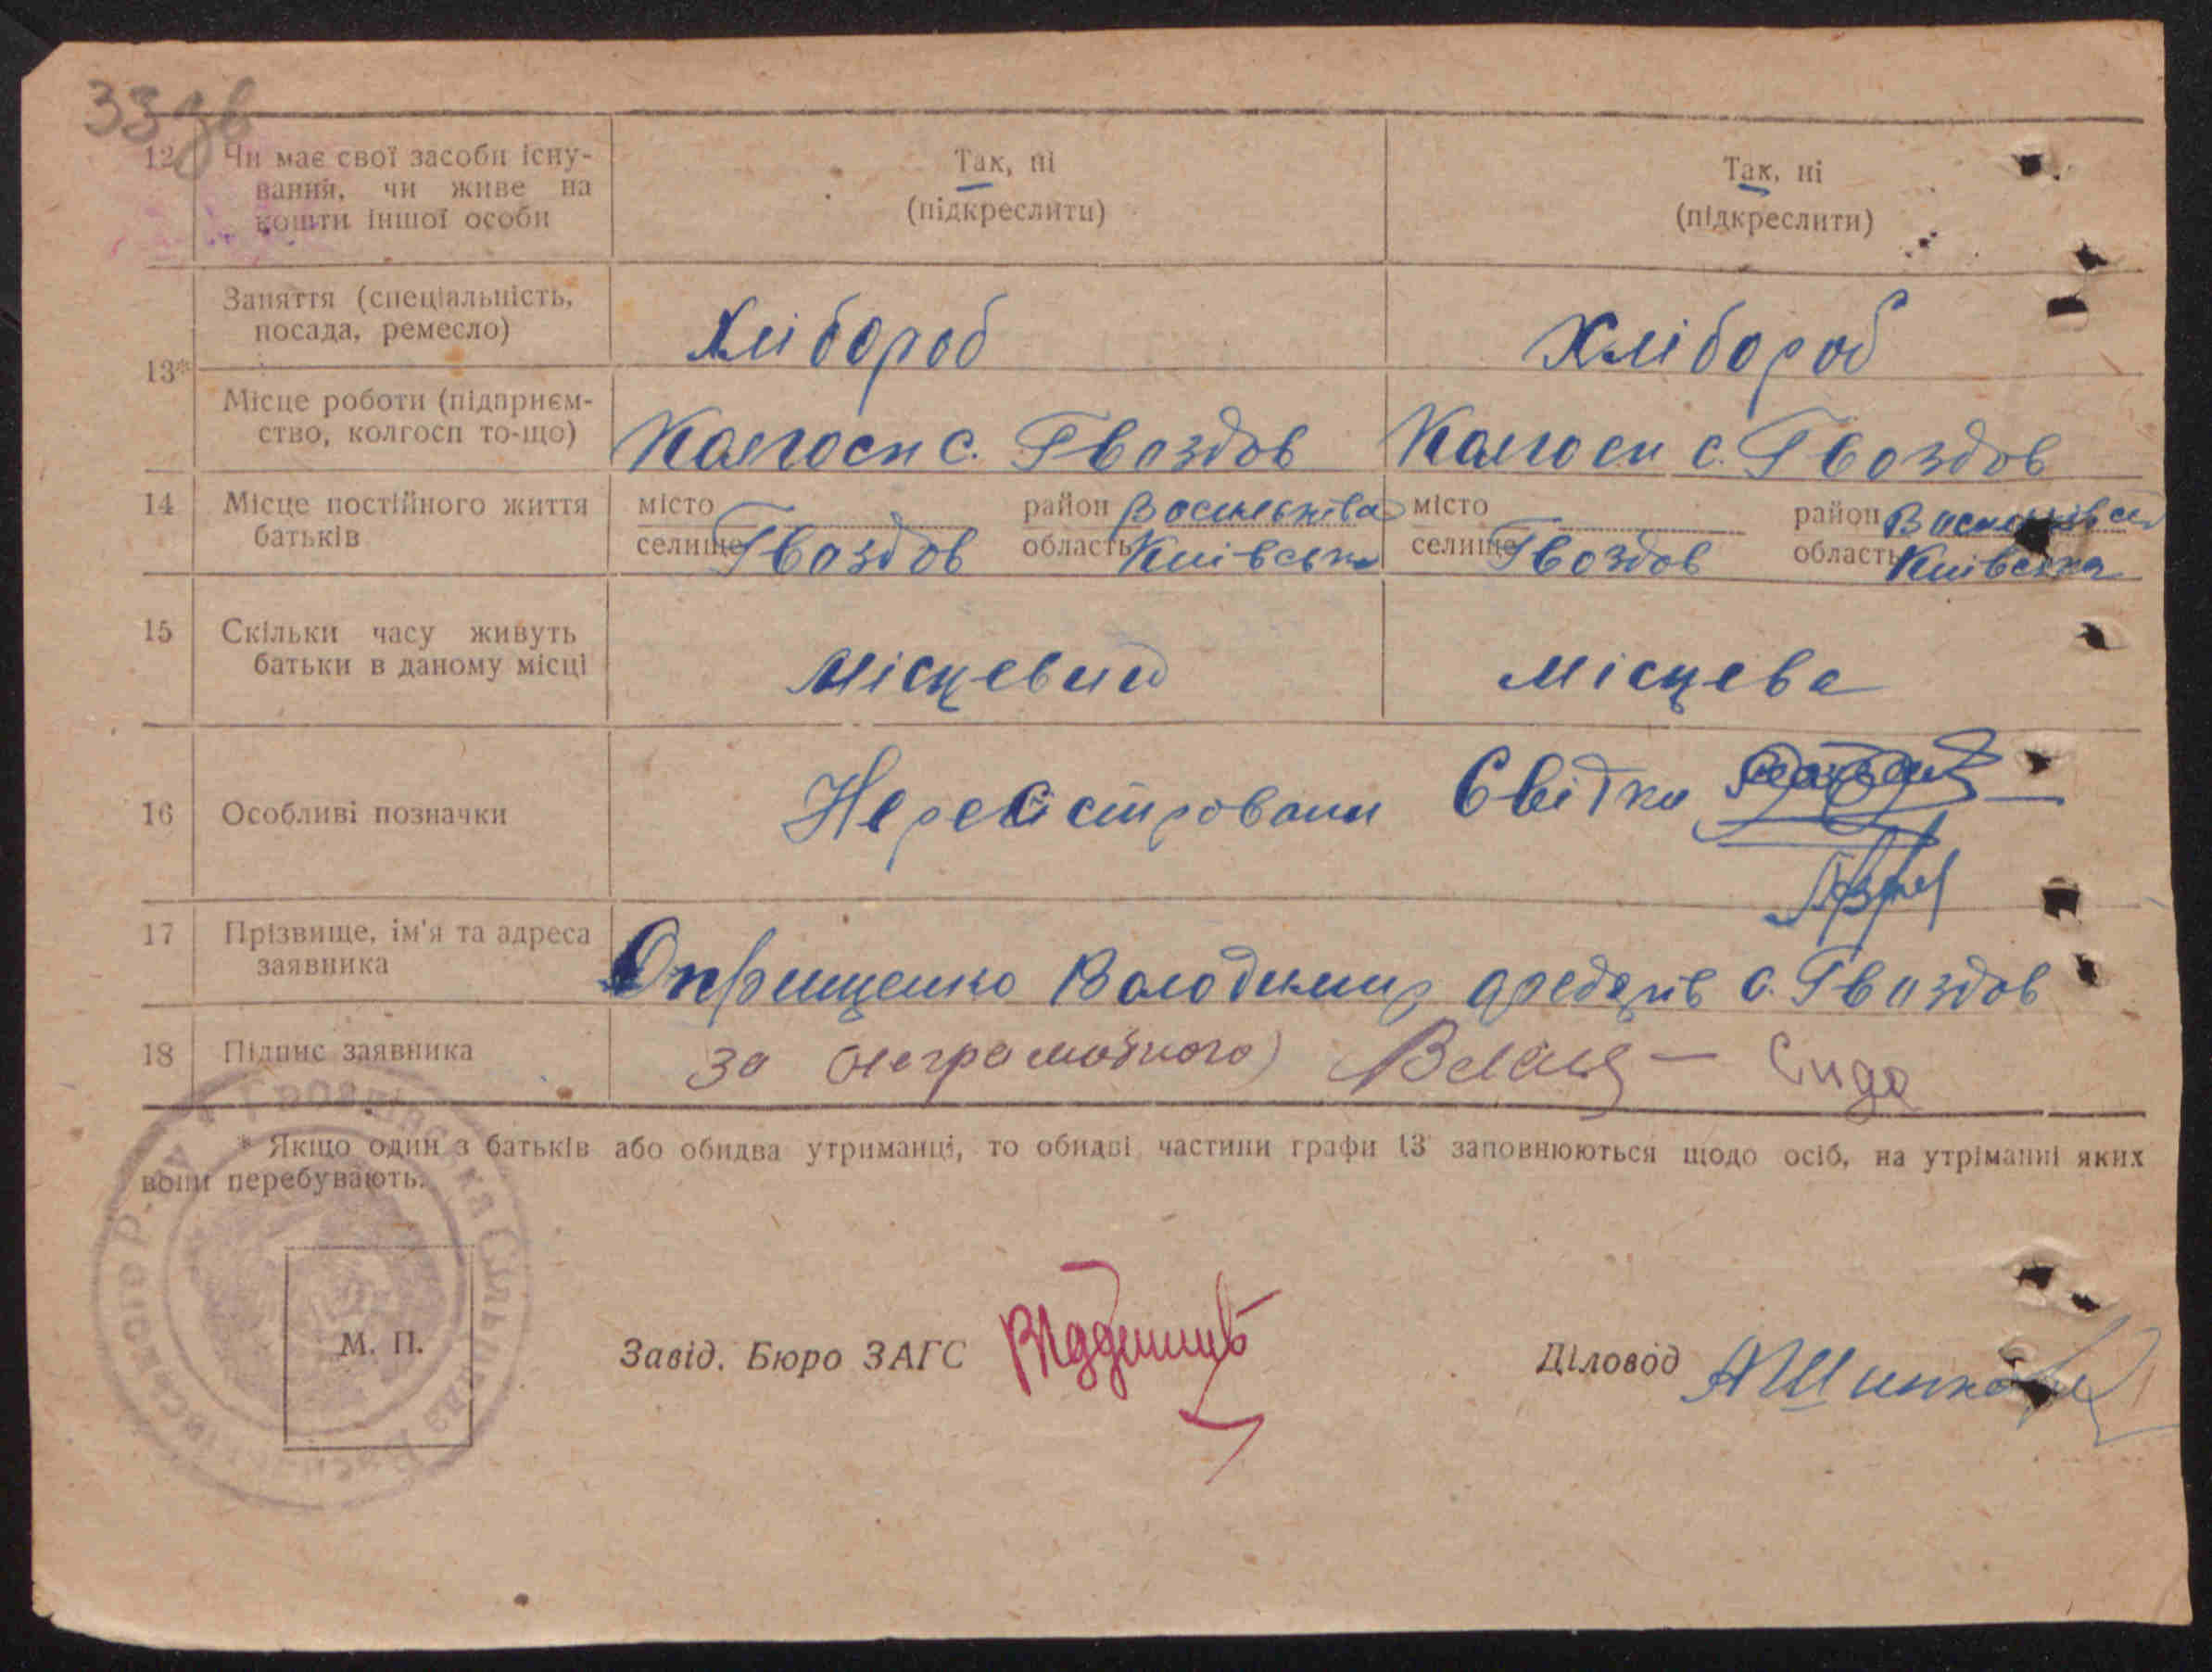 33зв
12 Чи має свої засоби існу-
вання, чи живе на
кошти іншої особи
Так, ні
(підкреслити)
Так, ні
(підкреслити)
13*
Заняття (спеціальність,
посада, ремесло)
Хлібороб
Хлібороб
Місце роботи (підприєм-
ство, колгосп то-що)
Колгосп с. Гвоздов
Колгосп с. Гвоздов
14 Місце постійного життя
батьків
місто
селище Гвоздов
район
область Київська
місто
селище Гвоздов
район
область Київська
15 Скільки часу живуть
батьки в даному місці
місцевий
місцева
16 Особливі позначки
Нерегістровани Свідки
17 Прізвище, ім'я та адреса
заявника
Онрищенко Володимир с. Гвоздов
18 Підпис заявника
за (неграмотного)
* Якщо один з батьків або обидва утриманці, то обидві частини графи 13 заповнюються щодо осіб, на утріманні яких
вони перебувають.
Гвоздівська Сільрада Васильківського Р-ну
М. П.
Завід. Бюро ЗАГС
Діловод